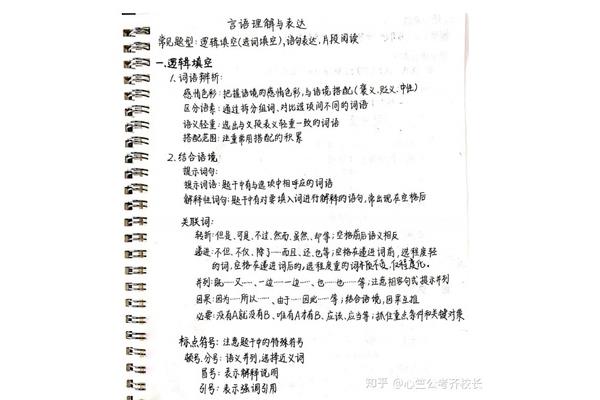 言语理解与表达
常见题型：逻辑填空(选词填空)，语句表达，片段阅读
一.逻辑填空
1.词语辨析：
感情色彩：把握语境的感情色彩，与语境搭配(褒义、贬义、中性)
区分语素：通过拆分组词，对比选项间不同的词语
语义轻重：选出与文段表义轻重一致的词语
搭配范围：注重常用搭配的积累
2.结合语境
提示词句：
提示词语：题干中有与选项中相呼应的词语
解释性词句：题干中有对要填入词进行解释的语句，常出现在空格后
关联词：
转折：但是、可是、不过、然而、虽然、却等；空格前后语义相反
递进：不但、不仅、除了……而且、还、也等；空格在递进词前，选程度轻
的词，空格在递进词后的，选程度重的词
并列：既……又……、一边……一边……、也……也……等；注意相容句式提示并列
因果：因为……所以……、由于……因此……等；结合语境，因果互推
必要：没有A就没有B、唯有A才有B、应该、应当等；抓住重点条件和关键对策
标点符号：注意题干中的特殊符号
顿号、分号：语义并列，选择近义词
冒号：表示解释说明
引号：表示强调引用
知乎 @心竺公考齐校长